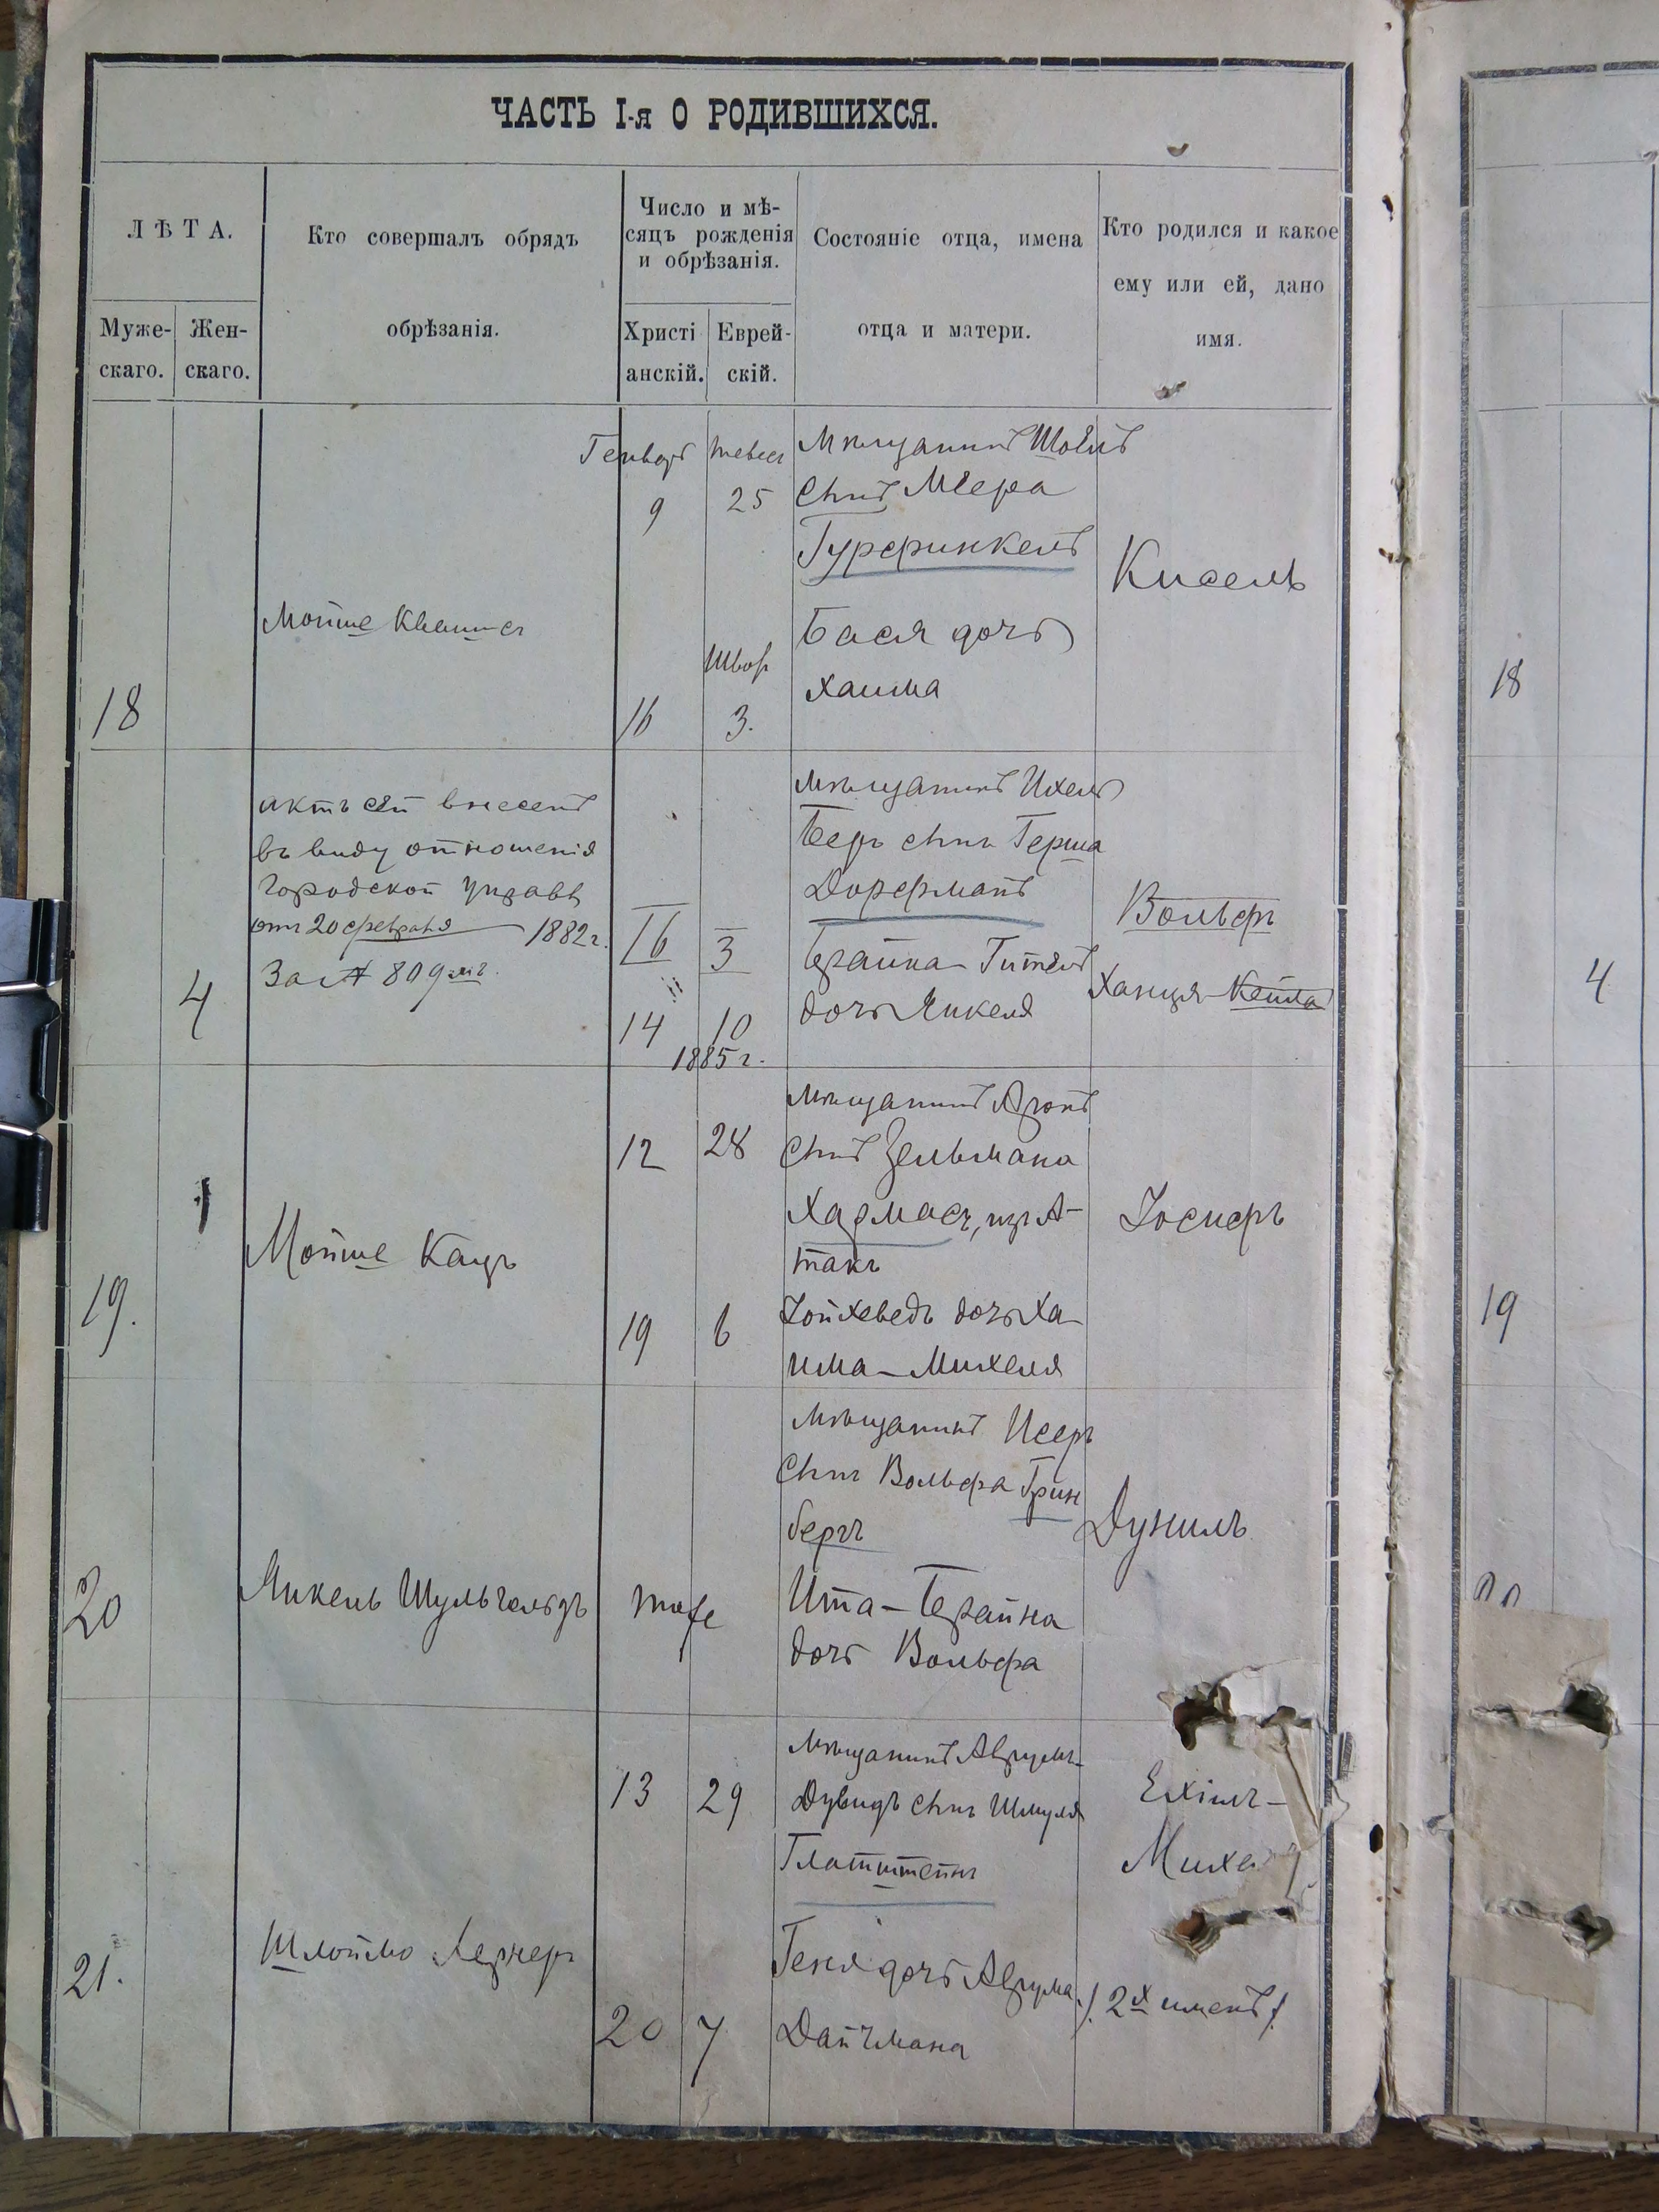 ЧАСТЬ I-я О РОДИВШИХСЯ.
ЛѢТА.
Муже-
скаго.
Жен-
скаго.
Кто совершалъ обрядъ
обрѣзанія.
Число и мѣ-
сяцъ рожденія
и обрѣзанія.
Христі
анскій.
Еврей-
скій.
Состояніе отца, имена
отца и матери.
Кто родился и какое
ему или ей, дано
имя.
18
Мойше
Генварь
9
16
25
3.
Мѣщанинъ
сынъ Меера
Гурфинкель
Бася дочь
Хаима
Кисель
18
4
актъ сей внесенъ
въ виду отношенія
Городской Управы
отъ 20 февраля 1882 г.
За № 809
16
3
14
10
1885 г.
мѣщанинъ Ихель
Беръ сынъ Герша
Дорфманъ
Брайна Гитель
дочь Янкеля
Вольфъ
Ханця-Кейла
4
19.
Мойше Кацъ
12
28
19
6
мѣщанинъ Аронъ
сынъ Зельмана
Хармасъ, изъ А-
такъ
Іойхеведъ дочь Ха-
има-Михеля
Іосифъ
19
20
Янкель Шульгольдъ
тоже
мѣщанинъ Исеръ
сынъ Вольфа Грин
бергъ
Ита-Брайна
дочь Вольфа
Дунилъ
21.
Шлоймо Лернеръ
13
29
20
7
мѣщанинъ Аврумъ-
Дувидъ сынъ Шмуля
Глатштейнъ
Геня дочь Аврума
Дайчмана
Ехіилъ-
Михе
/. 2х именъ /.